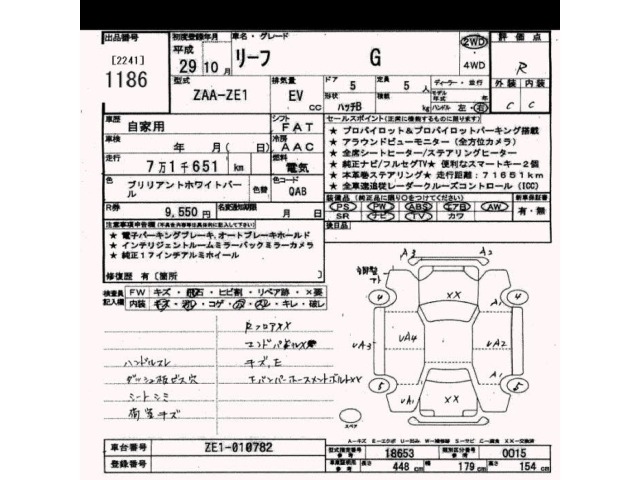 出品番号
[2241]
1186
初度登録年月
平成
29 10月
車名・グレード
リーフ G
2WD
4WD
評価点
R
型式
ZAA-ZE1
排気量
EV cc
ドア 5
定員 5 人
形状 ハッチB
積載 kg
ディーラー・並行
モデル年式 年
ハンドル 左・右
外装 内装
C C
車歴
自家用
シフト
FAT
車検
年 月 ( 日)
冷房
AAC
走行
7万1千651 km
燃料
電気
色
ブリリアントホワイトパール
色替
色コード
QAB
R券
9,550 円
名変通知期限
月 日
セールスポイント(正常に機能するものに限ります)
★ プロパイロット&プロパイロットパーキング搭載
★ アラウンドビューモニター (全方位カメラ)
★ 全席シートヒーター/ステアリングヒーター
★ 純正ナビ/フルセグTV★ 便利なスマートキー2個
★ 本革巻ステアリング★ 走行距離:71651km
★ 全車速追従レーダークルーズコントロール (ICC)
装備品 (純正品に限り○をつけてください)
PS PW ABS エアB AW
SR ナビ TV カワ
新車保証書
有・無
後日品
注意事項申告欄
★ 電子パーキングブレーキ、オートブレーキホールド
★ インテリジェントルームミラーバックミラーカメラ
★ 純正17インチアルミホイール
修復歴 有 [箇所 ]
検査員記入欄
FW キズ・飛石・ヒビ割・リペア跡・×要
内装 キズ・汚レ・コゲ・穴・スレ・キレ・破レ
RフロアXX
エンドパネルX
ハンドルスレ
キズ、E
ダッシュ板ビス穴
シートシミ
荷室キズ
A3
A3
XX
4
4
UA3
UA4
UA2
A1
A1
UA1
5
5
XX
UA1
スペア
A-キズ E-エクボ U-凹み W-補修跡 S-サビ C-腐食 XX-交換済
車台番号
ZE1-010782
登録番号
型式指定番号 参考
18653
類別区分番号 参考
0015
長さ 448 cm
幅 179 cm
高さ 154 cm